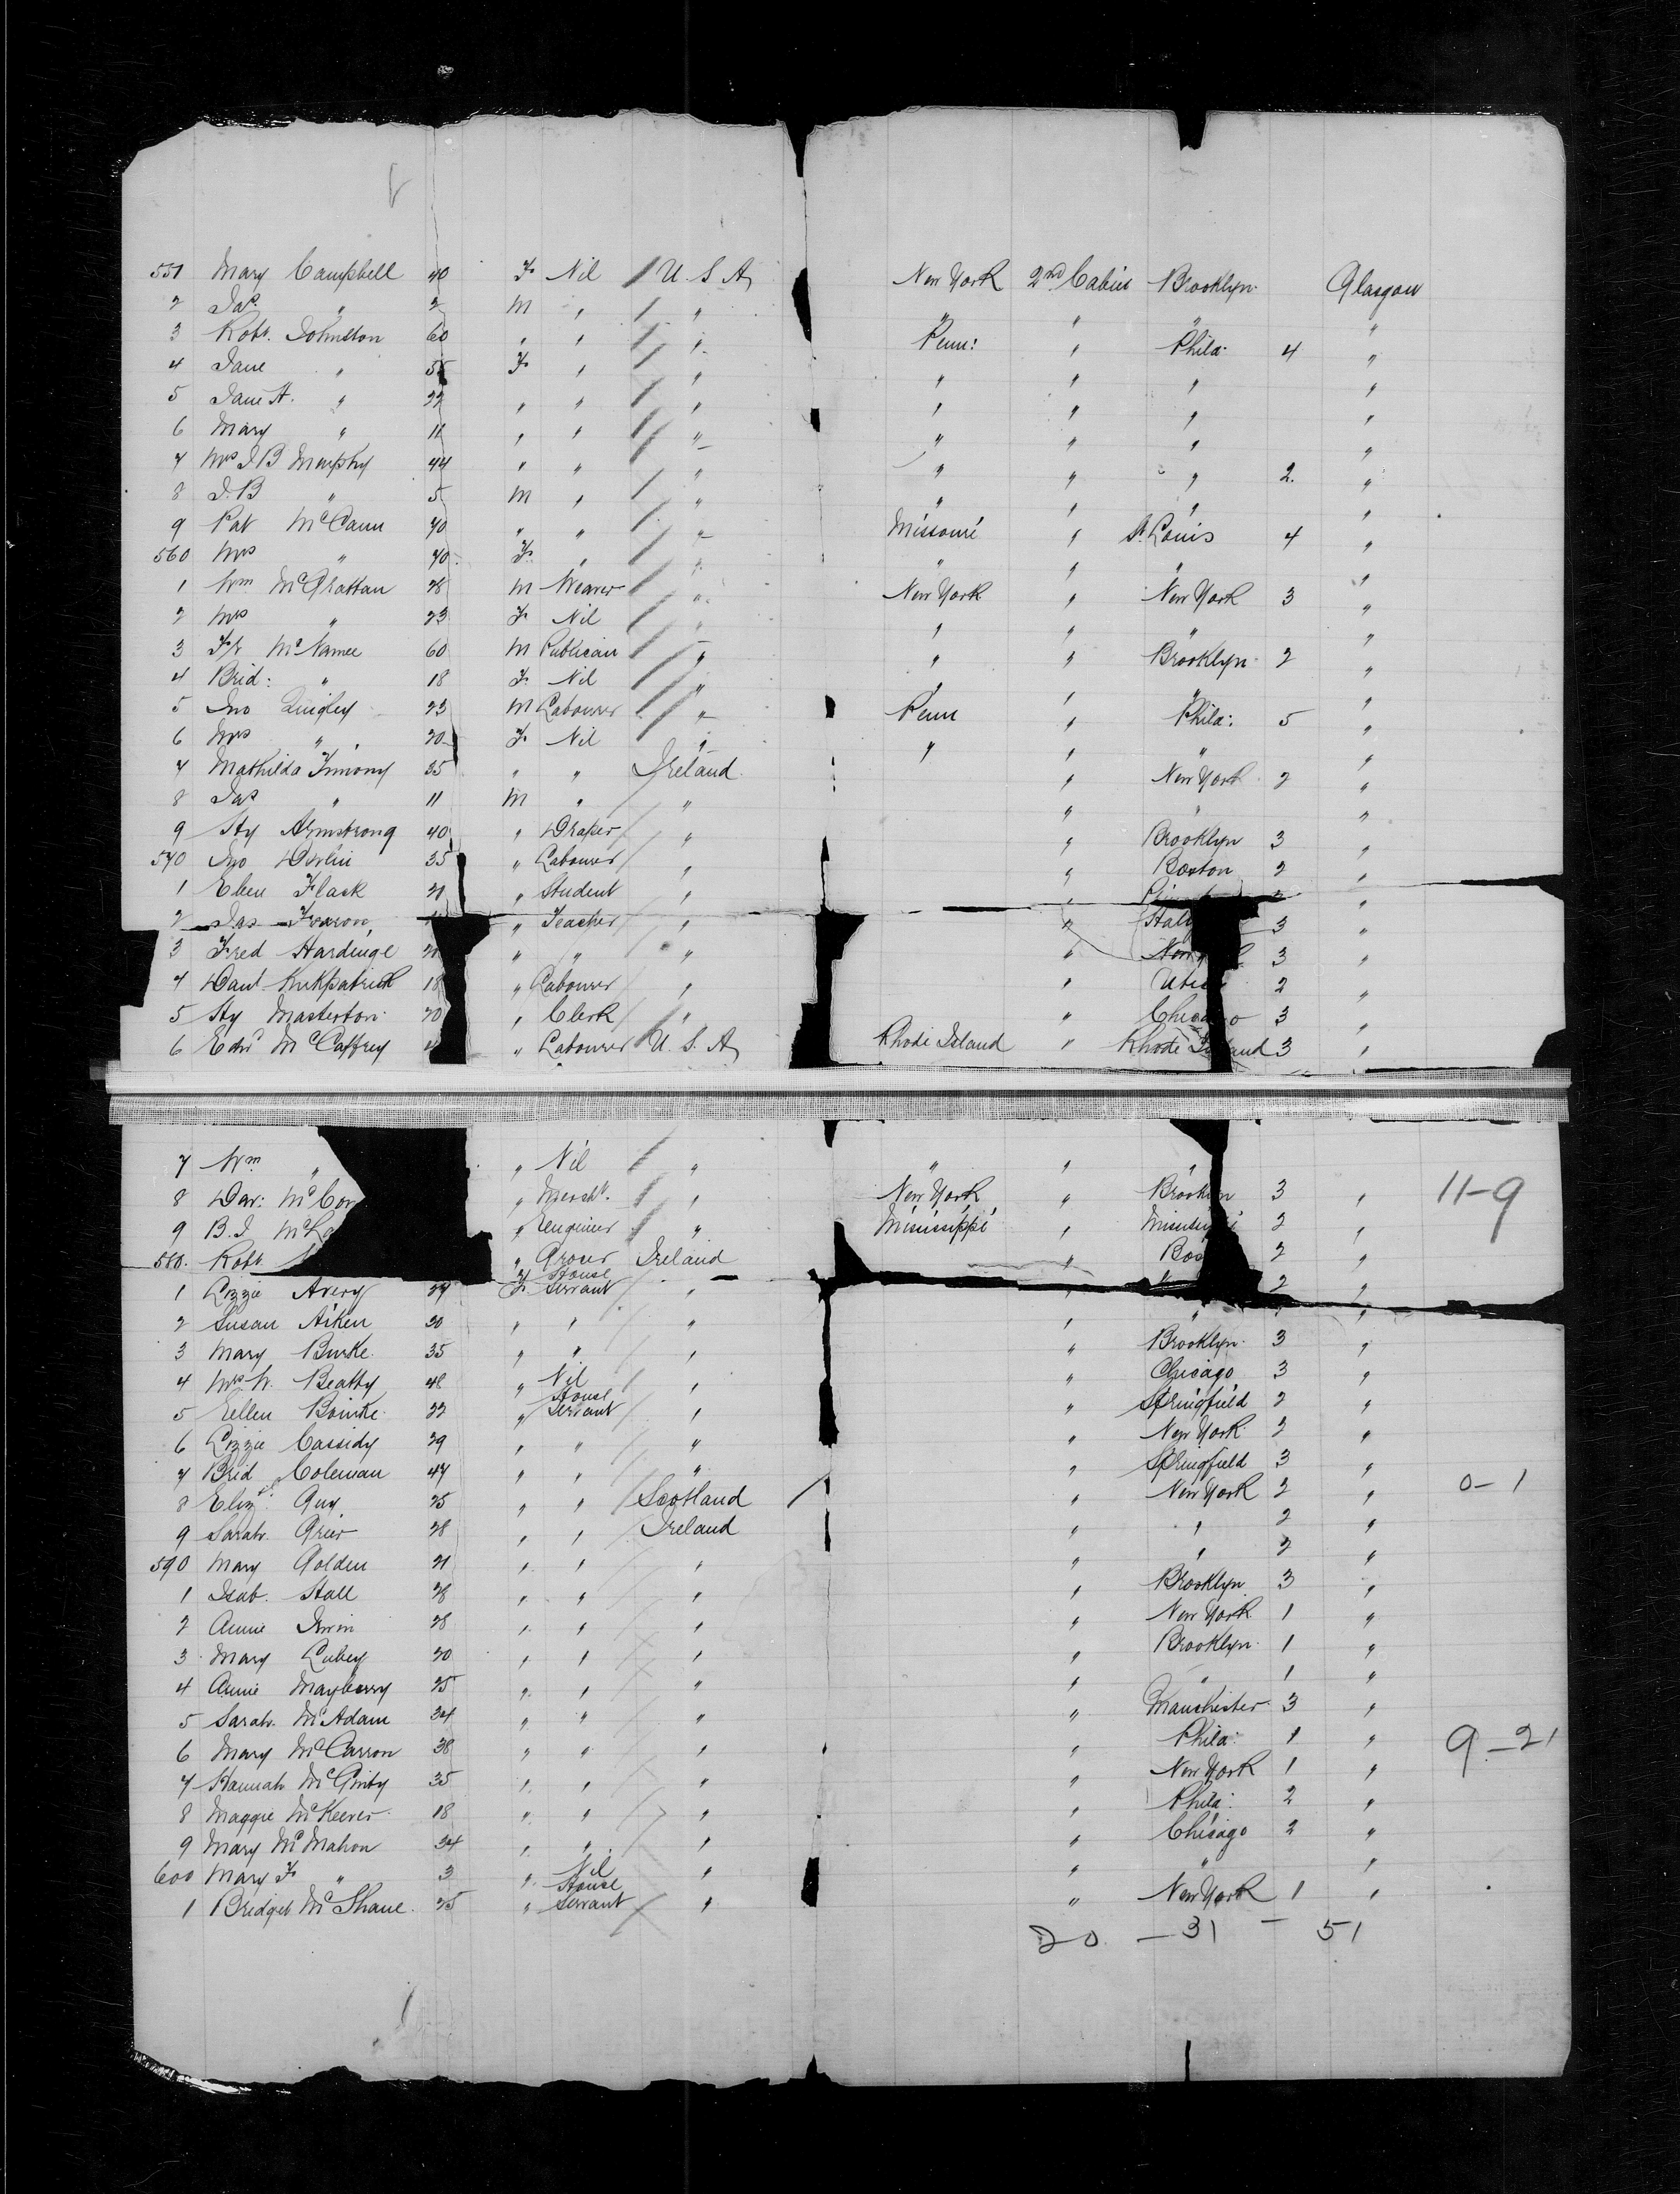 551 Mary Campbell 40 F Nil U.S.A. New York 2nd Cabin Brooklyn Glasgow
2 Jas. " 2 M " " " " " "
3 Robt. Johnston 60 " " " Penn: " Phila: 4 "
4 Jane " 55 F " " " " " "
5 Jane A. " 22 " " " " " " "
6 Mary " 11 " " " " " " "
7 Mrs J B Murphy 44 " " " " " " 2. "
8 J.B " 5 M " " " " " "
9 Pat McCann 40 " " " Missouri " St. Louis 4 "
560 Mrs " 40 F " " " " " "
1 Wm McGrattan 28 M Weaver " New York " New York 3 "
2 Mrs " 23 F Nil " " " " "
3 McNamee 60 M Publican " " " Brooklyn 2 "
4 Brid: " 18 F Nil " " " " "
5 Jno Quigley 23 M Labourer " Penn " Phila: 5 "
6 Mrs " 20 F Nil " " " " "
7 Mathilda 35 " " Ireland " New York 2 "
8 Jas " 11 M " " " " "
9 Hy Armstrong 40 " Draper " " Brooklyn 3 "
570 Jno Devlin 35 " Labourer " " Boston 2 "
1 Eben Flack 21 " Student " "
2 Jas Fearon " Teacher " " 3 "
3 Fred Hardinge " " " " 3 "
4 Danl Kirkpatrick 18 " Labourer " " Utica 2 "
5 Hy Masterton 20 " Clerk " " Chicago 3 "
6 Edwd McCaffrey " Labourer U.S.A. Rhode Island " Rhode Island 3 "
7 Wm " " Nil " " " "
8 Dav: McCor " Mercht. " New York " Brooklyn 3 " 11-9
9 B.J. McLa " Engineer " Mississippi " 2 "
580. Robt " Grocer Ireland " Bos 2 "
1 Lizzie Avery 27 F House Servant " " 2 "
2 Susan Aiken 20 " " " " " "
3 Mary Burke 35 " " " " Brooklyn 3 "
4 Mrs W. Beatty 48 " Nil " " Chicago 3 "
5 Ellen Bourke 22 " House Servant " " Springfield 2 "
6 Lizzie Cassidy 29 " " " " New York 2 "
7 Brid Coleman 47 " " " " Springfield 3 "
8 Elizth: Guy 25 " " Scotland " New York 2 " 0-1
9 Sarah Grier 28 " " Ireland " " 2 "
590 Mary Golden 21 " " " " " 2 "
1 Isab. Hall 28 " " " " Brooklyn 3 "
2 Annie Irwin 28 " " " " New York 1 "
3 Mary Lubey 20 " " " " Brooklyn 1 "
4 Annie Mayberry 25 " " " " " 1 "
5 Sarah McAdam 34 " " " " Manchester 3 "
6 Mary McCarron 38 " " " " Phila: 1 " 9-21
7 Hannah McGinty 35 " " " " New York 1 "
8 Maggie McKeever 18 " " " " Phila: 2 "
9 Mary McMahon 34 " " " " Chicago 2 "
600 Mary F " 3 " Nil " " " "
1 Bridget McShane 25 " House Servant " " New York 1 "
20 - 31 - 51